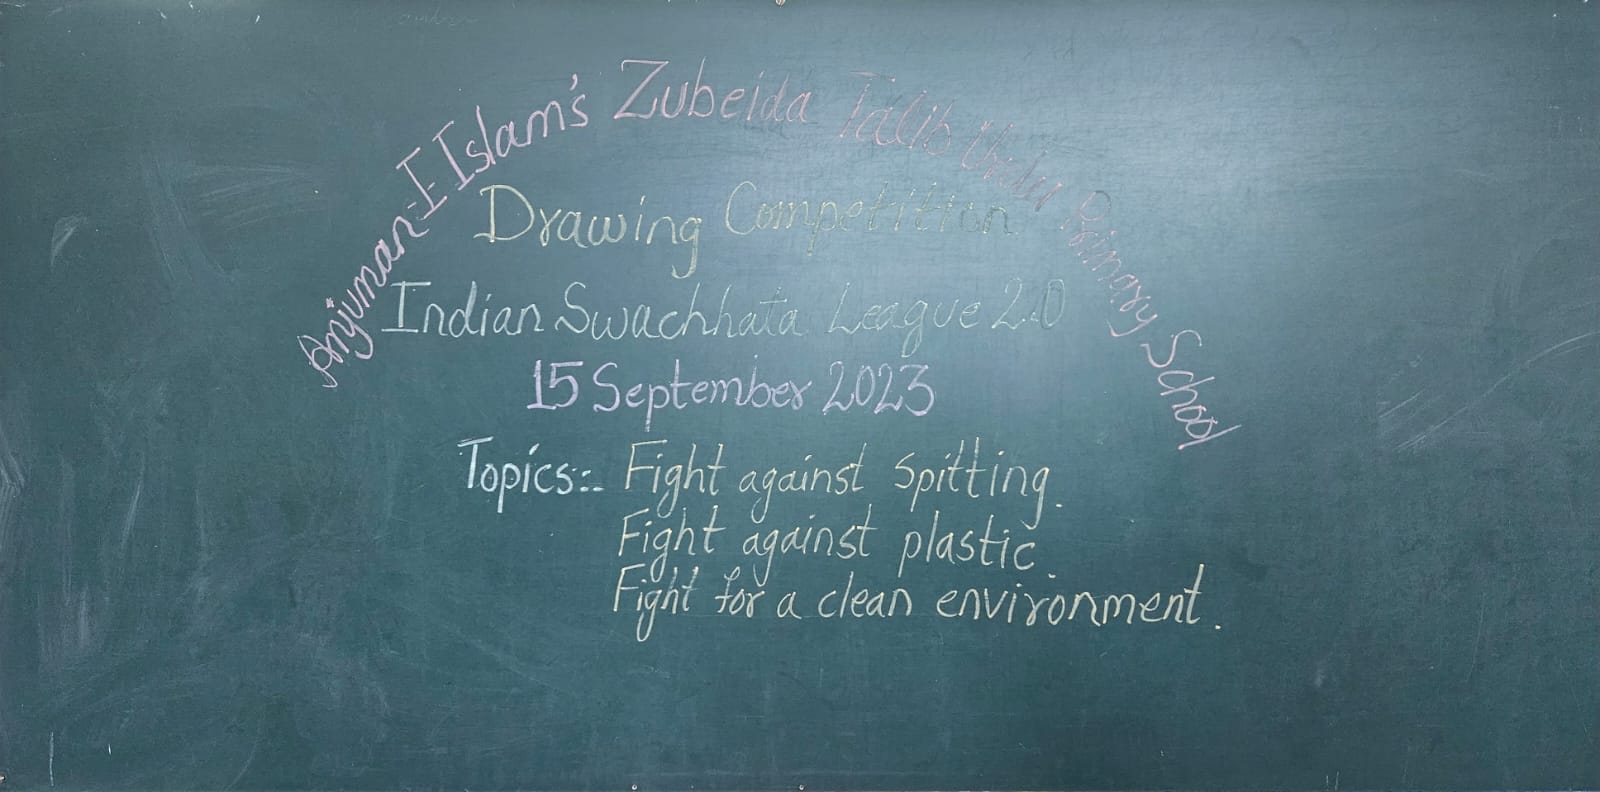 Anjuman-I-Islam's Zubeida Talib Urdu Primary School
Drawing Competition
Indian Swachhata League 2.0
15 September 2023
Topics:- Fight against spitting.
Fight against plastic.
Fight for a clean environment.